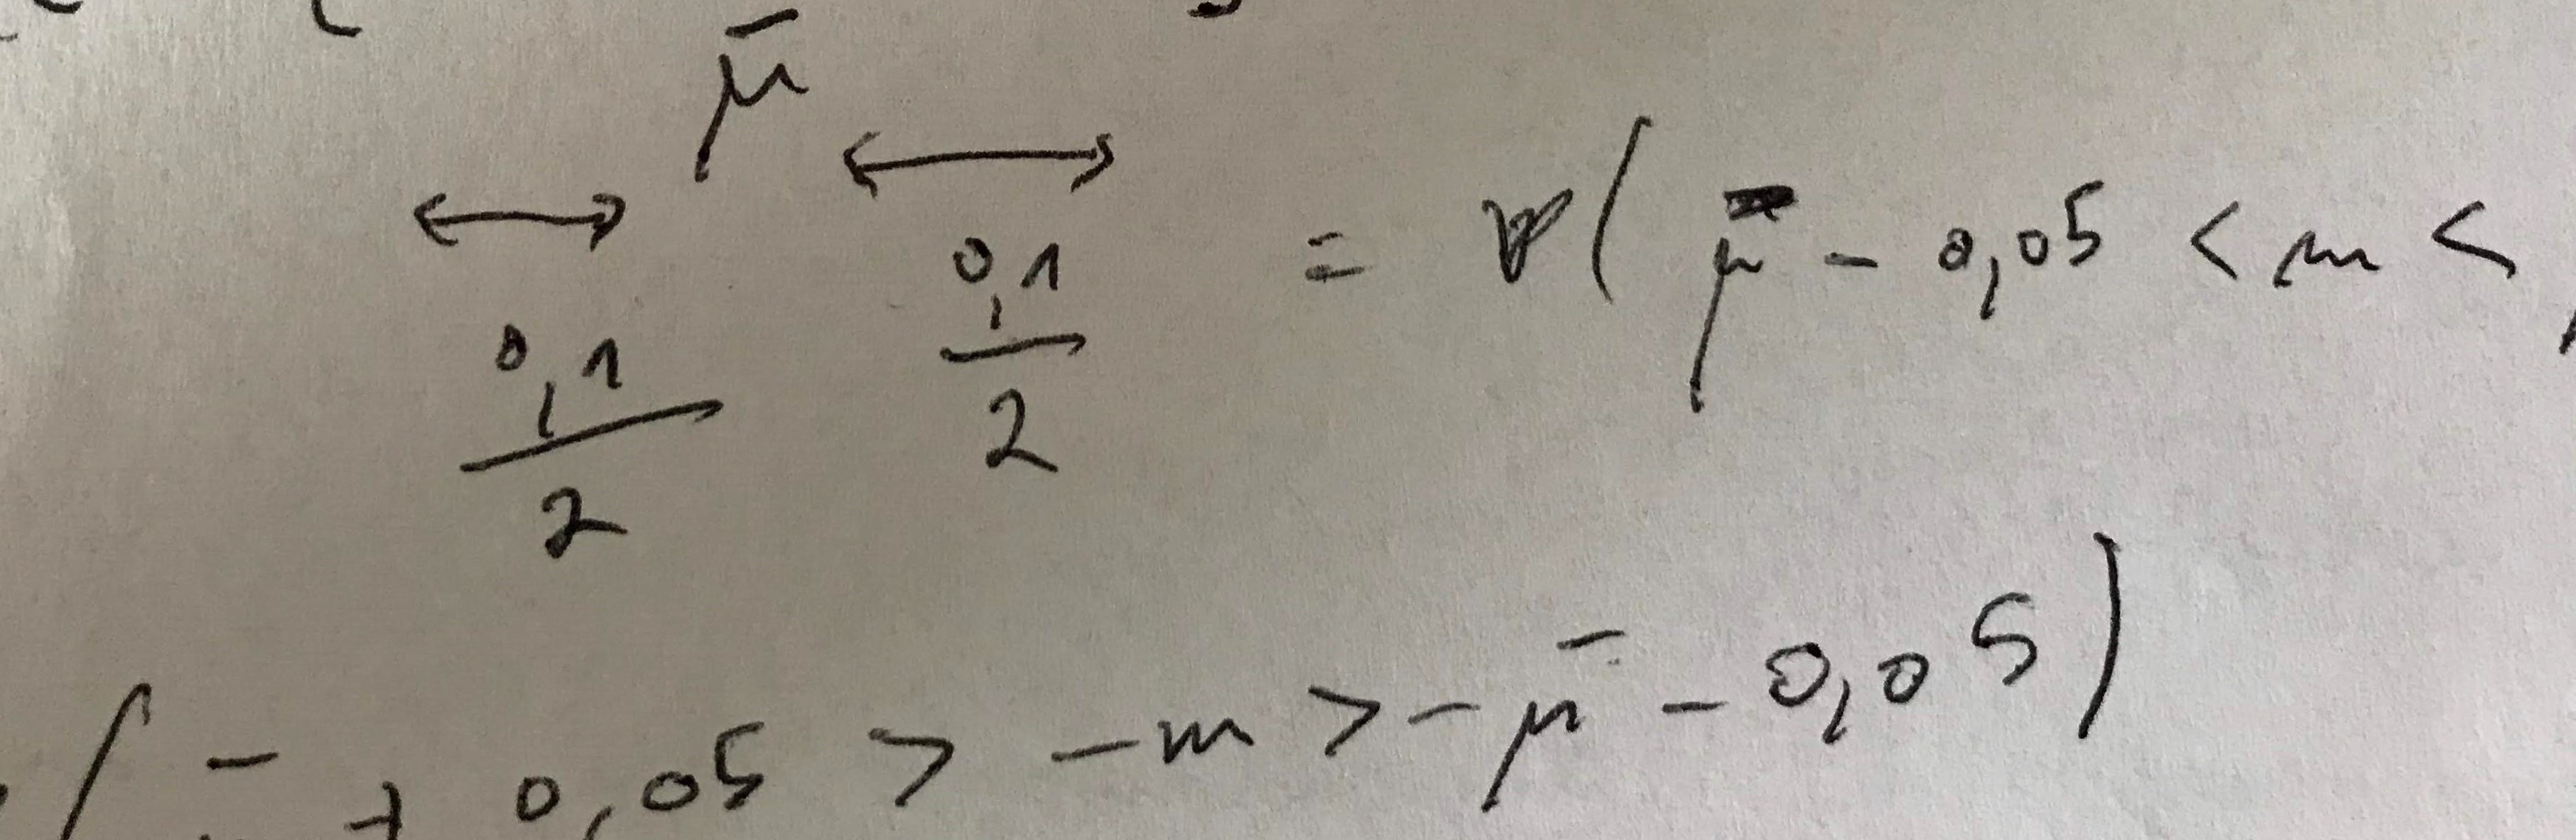 μ̄
0,1/2 0,1/2 = P( μ̄ - 0,05 < m <
( + 0,05 > -m > -μ̄ - 0,05)